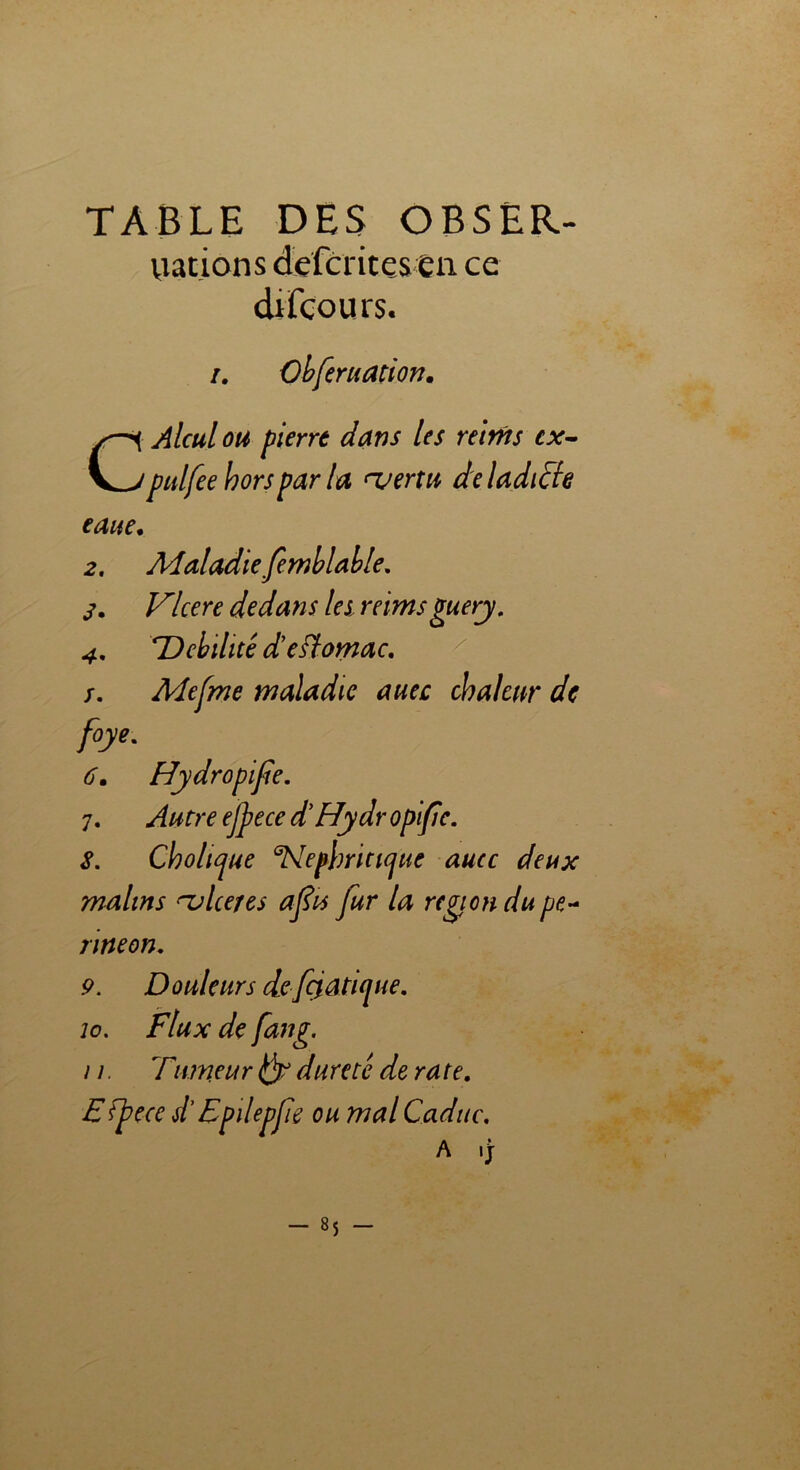 TABLE DES OBSER-
uations deſcrites en ce
diſcours.
1. Obſeruation.
CAlcul ou pierre dans les reims ex-
pulſee hors par la vertu de ladicte
eaue.
2. Maladie ſemblable.
3. Vlcere dedans les reims guery.
4. Debilité d'eſtomac.
5. Meſme maladie auec chaleur de
foye.
6. Hydropiſie.
7. Autre eſpece d'Hydropiſie.
8. Cholique Nephritique auec deux
malins vlceres aſſis ſur la region du pe-
rineon.
9. Douleurs de ſciatique.
10. Flux de ſang.
11. Tumeur & dureté de rate.
Eſpece d'Epilepſie ou mal Caduc.
A ij
— 85 —